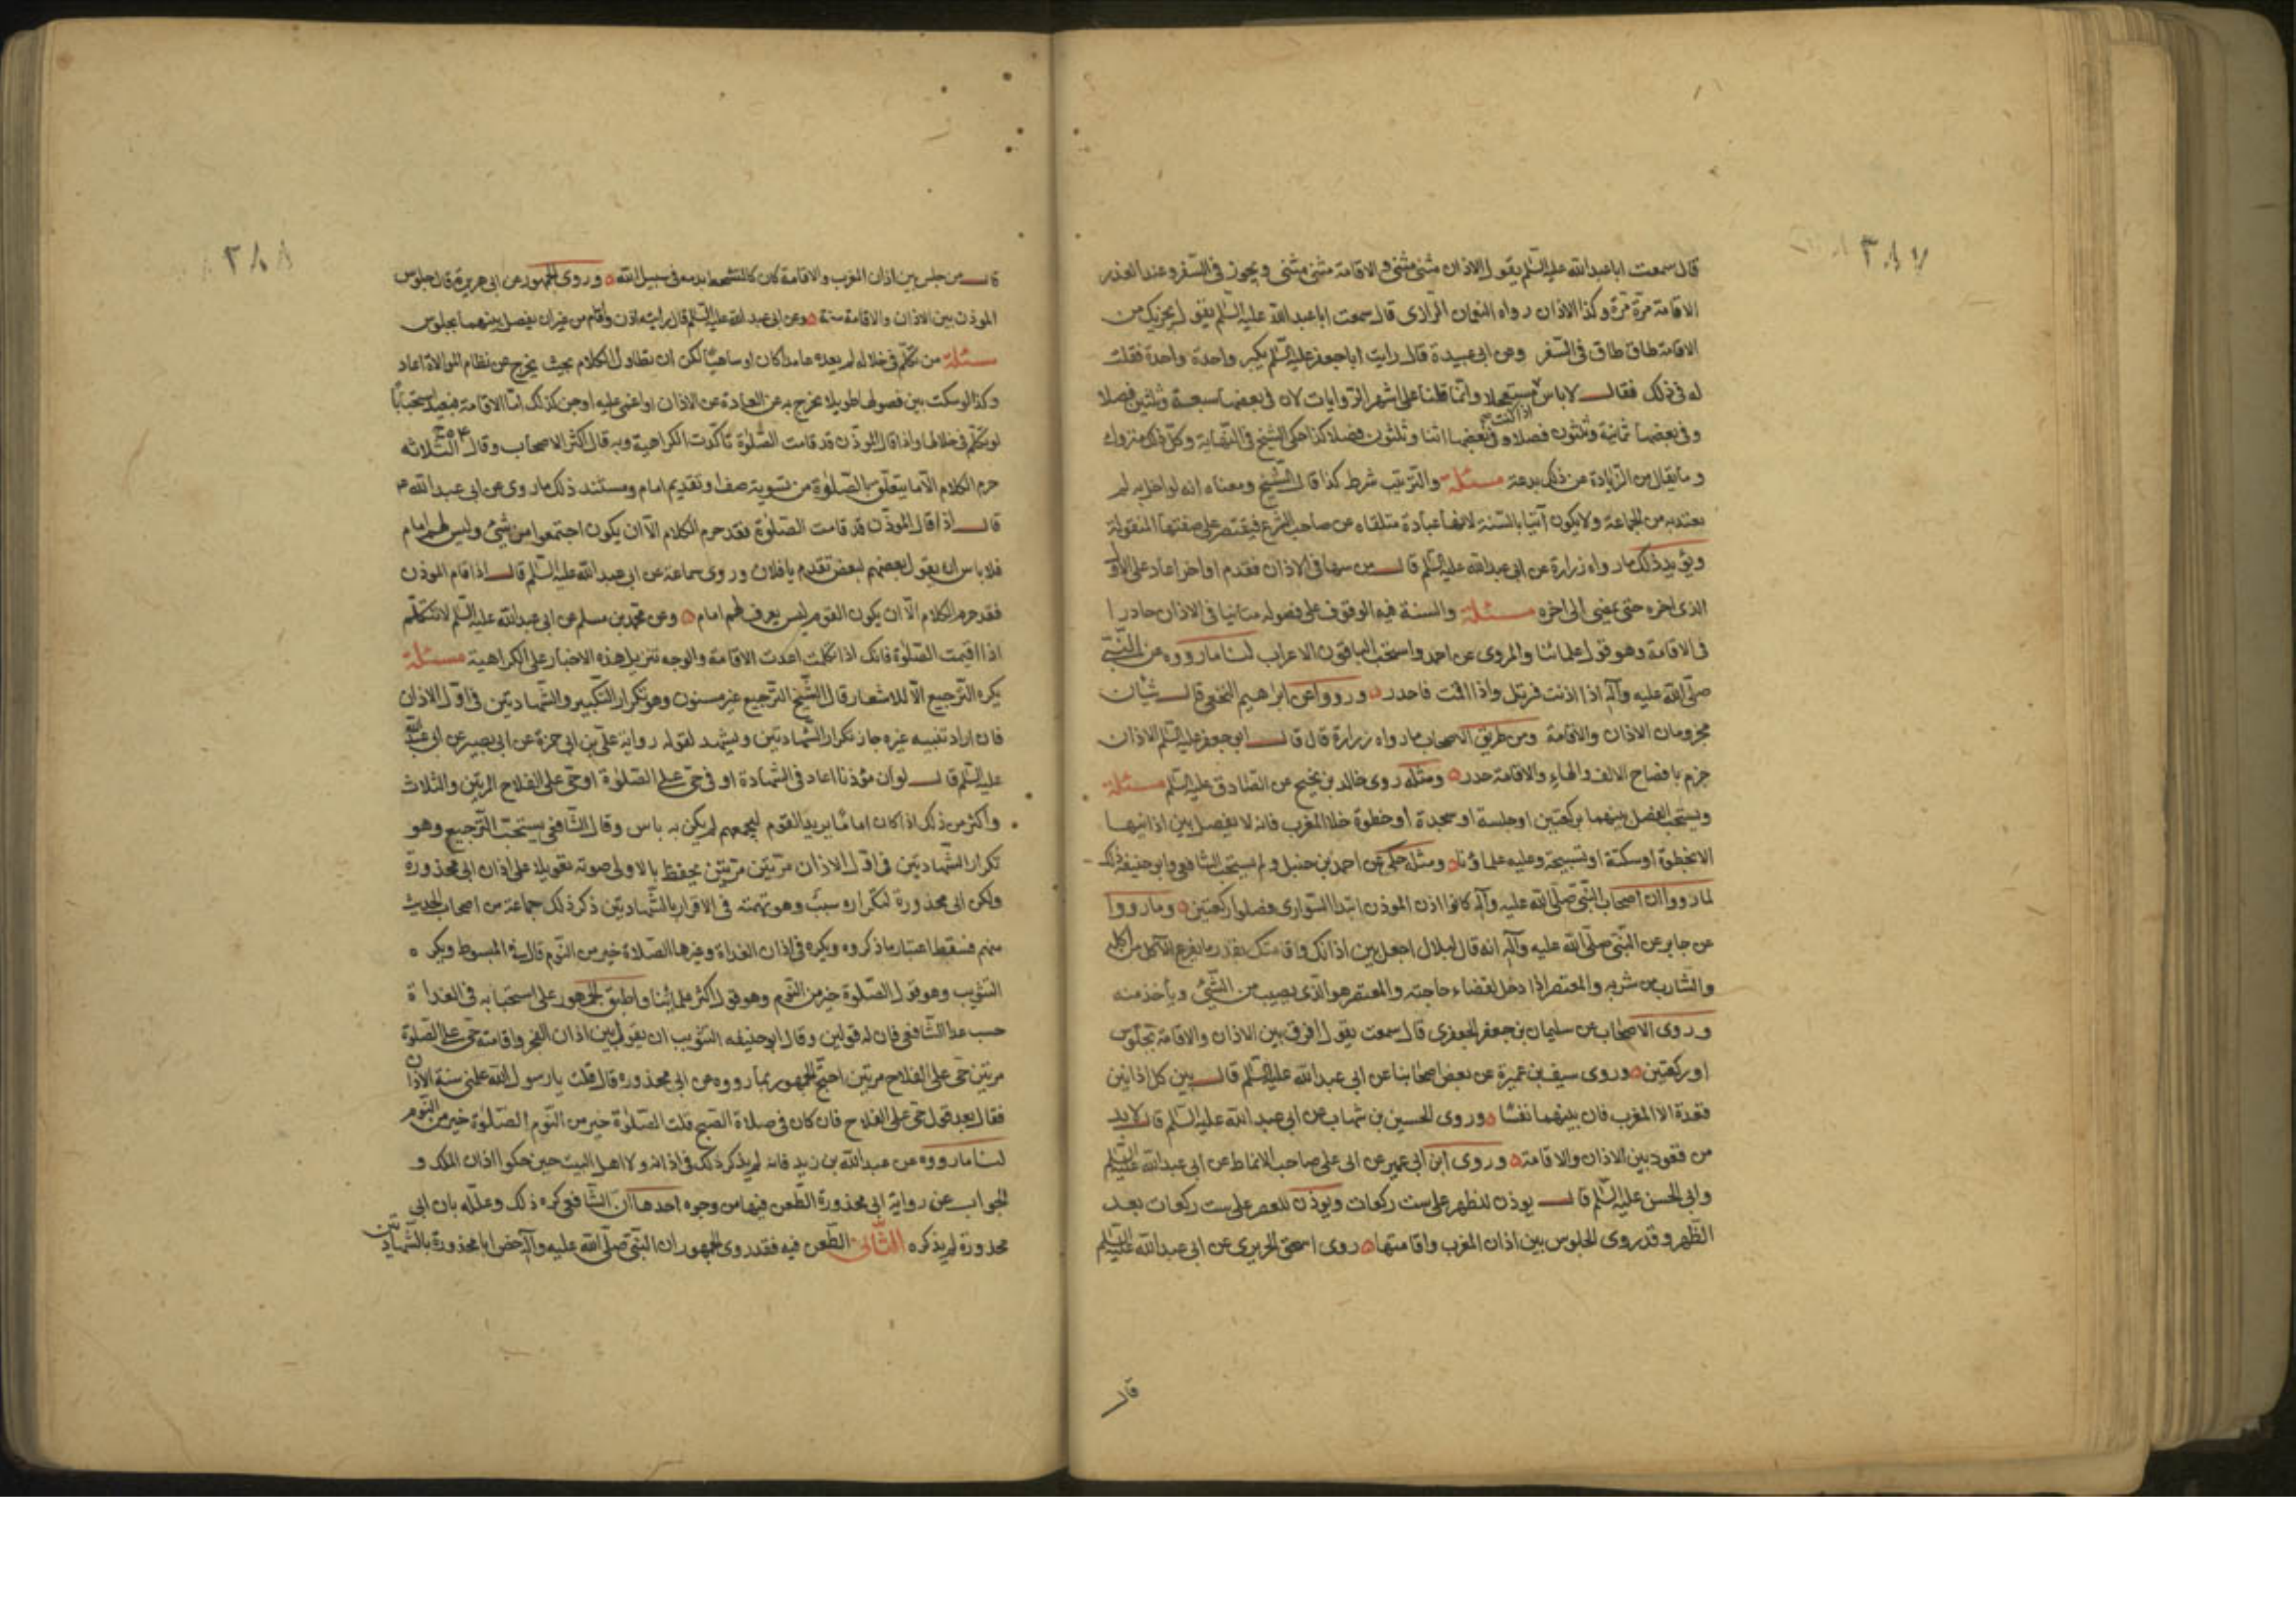 ٣٨٧
قال سمعت ابا عبدالله عليه السّلم يقول الاذان مثنى مثنى والاقامة مثنى مثنى ويجوز في السّفر وعند العذر
الاقامة مرّة مرّة وكذا الاذان رواه النعمان الرازى قال سمعت ابا عبدالله عليه السّلم يقول يجزيك من
الاقامة طاق طاق فى السّفر وعن ابى عبيدة قال رايت ابا جعفر عليه السّلم يكبر واحدة واحدة فقلت
له فى ذلك فقال لا باس مستعجلا وانّما قلنا على اشهر الروايات لان فى بعضها سبعة وثلثين فصلا
اذا كنت
وفى بعضها ثمانية وثلثون فصلا وفى بعضها اثنا وثلثون فصلا كذا حكى الشيخ فى النهاية وكلّ ذلك متروك
وما يقال من الزّيادة عن ذلك بدعة مسئلة والترتيب شرط كذا قال الشّيخ ومعناه انه لو اخل به لم
يعتد به من الجماعة ولا يكون آتيا بالسّنة لانها عبادة متلقاه عن صاحب الشرع فيقتصر على صفتها المنقولة
ويؤيد ذلك ما رواه زرارة عن ابى عبدالله عليه السّلم قال من سها فى الاذان فقدم او اخر اعاد على الاول
الذى اخره حتى يمضى الى اخره مسئلة والسنة فيه الوقوف على فصوله متانيا فى الاذان حادرا
فى الاقامة وهو قول علمائنا والمروى عن احمد واستحب الباقون الاعراب لنا ما رووه عن النّبى
صلّى الله عليه وآله اذا اذنت فرتل واذا اقمت فاحدر ورووا عن ابراهيم النخعى قال شيئان
مجزومان الاذان والاقامة ومن طريق الاصحاب ما رواه زرارة قال قال ابو جعفر عليه السّلم الاذان
جزم بافصاح الالف والهاء والاقامة حدر ومثله روى خالد بن نجيح عن الصّادق عليه السّلم مسئلة
ويستحب الفصل بينهما بركعتين او جلسة او سجدة او خطوة خلا المغرب فانه لا يفصل بين اذانيها
الا بخطوة او سكتة او تسبيحة وعليه علماؤنا ومثله حكى عن احمد بن حنبل ولم يستحب الشافعى وابو حنيفة ذلك
لما رووا ان اصحاب النّبى صلّى الله عليه وآله كانوا اذا اذن الموذن ابتدا السّوارى وصلوا ركعتين وما رووا
عن جابر عن النّبى صلّى الله عليه وآله انه قال لبلال اجعل بين اذانك واقامتك بقدر ما يفرع الآكل من اكله
والشّارب من شربه والمعتصر اذا دخل لقضاء حاجته والمعتصر هو الذى يصيب من الشّئ ويأخذ منه
وروى الاصحاب عن سليمان بن جعفر الجعفرى قال سمعت يقول افرق بين الاذان والاقامة بجلوس
او ركعتين وروى سيف بن عميرة عن بعض اصحابنا عن ابى عبدالله عليه السّلم قال بين كل اذانين
قعدة الا المغرب فان بينهما نفسًا وروى الحسين بن شهاب عن ابى عبدالله عليه السّلم قال لا بد
من قعود بين الاذان والاقامة وروى ابن ابى عمير عن ابى على صاحب الانماط عن ابى عبدالله عليه السّلم
وابى الحسن عليه السّلم قال يوذن للظهر على ست ركعات ويوذن للعصر على ست ركعات بعد
الظّهر وقد روى الجلوس بين اذان المغرب واقامتها روى اسحق الحريرى عن ابى عبدالله عليه السّلم
قال
٣٨٨
قال من جلس بين اذان المغرب والاقامة كان كالمتشحط بدمه فى سبيل الله وروى الجمهور عن ابى هريرة قال جلوس
الموذن بين الاذان والاقامة سنة وعن ابى عبدالله عليه السّلم قال رايته اذن واقام من غير ان يفصل بينهما بجلوس
مسئلة من تكلّم فى خلاله لم يعده عامدا كان او ساهيًا لكن ان تطاول الكلام بحيث يخرج عن نظام الموالاة اعاد
وكذا لو سكت بين فصولها طويلا يخرج به عن العادة عن الاذان او اغمى عليه او جن كذلك امّا الاقامة فيعيد استحبابًا
لو تكلّم فى خلالها واذا قال المؤذّن قد قامت الصّلوٰة تاكّدت الكراهية وبه قال اكثر الاصحاب وقال الثلاثه
حرم الكلام الّا ما يتعلّق بالصّلوٰة من تسوية صف او تقديم امام ومستند ذلك ما روى عن ابى عبدالله ع
قال اذا قال المؤذّن قد قامت الصّلوٰة فقد حرم الكلام الّا ان يكون اجتمعوا من شتى وليس لهم امام
فلا باس ان يقول بعضهم لبعض تقدم يا فلان وروى سماعة عن ابى عبدالله عليه السّلم قال اذا اقام الموذن
فقد حرم الكلام الّا ان يكون القوم ليس يعرف لهم امام وعن محمّد بن مسلم عن ابى عبدالله عليه السّلم لا تتكلّم
اذا اقيمت الصّلوٰة فانك اذا تكلمت اعدت الاقامة والوجه تنزيل هذه الاخبار على الكراهية مسئلة
يكره التّرجيع الّا للاشعار قال الشّيخ الترجيع غير مسنون وهو تكرار التّكبير والشّهادتين فى اوّل الاذان
فان اراد تنبيه غيره جاز تكرار الشّهادتين ويشهد لقوله رواية علىّ بن ابى حمزة عن ابى بصير عن ابى عبدالله
عليه السّلم قال لو ان مؤذنا اعاد فى الشّهادة او فى حىّ على الصّلوٰة او حىّ على الفلاح المرتين والثلاث
واكثر من ذلك اذا كان امامًا يريد القوم ليجمعهم لم يكن به باس وقال الشّافعى يستحبّ التّرجيع وهو
تكرار الشّهادتين فى اوّل الاذان مرّتين مرّتين يخفض بالاولى صوته تعويلا على اذان ابى محذورة
ولكن ابى محذورة لتكراره سبب وهو تهمته فى الاقرار بالشّهادتين ذكر ذلك جماعة من اصحاب الحديث
منهم فسقط اعتبار ما ذكروه ويكره فى اذان الغداة وغيرها الصّلاة خير من النّوم قال فى المبسوط ويكره
التثويب وهو قول الصّلوٰة خير من النّوم وهو قول اكثر علمائنا واطبق الجمهور على استحبابه فى الغداة
حسب عدا الشّافعى فان له قولين وقال ابو حنيفه التثويب ان يقول بين اذان الفجر واقامته حىّ على الصّلوة
مرتين حىّ على الفلاح مرتين احتج الجمهور بما رووه عن ابى محذوره قال قلت يا رسول الله علمنى سنة الاذان
فقال بعد قول حىّ على الفلاح فان كان فى صلاة الصّبح قلت الصّلوٰة خير من النّوم الصّلوٰة خير من النّوم
لنا ما رووه عن عبدالله بن زيد فانه لم يذكر ذلك فى اذانه ولا اهل البيت حين حكوا اذان الملك و
الجواب عن رواية ابى محذورة الطّعن فيها من وجوه احدها انّ الشّافعى كره ذلك وعلّله بان ابى
محذورة لم يذكره الثّانى الطّعن فيه فقد روى الجمهور ان النّبى صلّى الله عليه وآله خص ابا محذورة بالشّهادتين